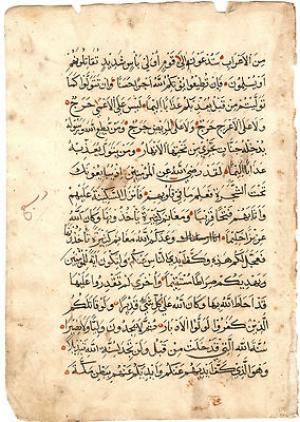 مِنَ الْأَعْرَابِ سَتُدْعَوْنَ إِلَى قَوْمٍ أُولِي بَأْسٍ شَدِيدٍ تُقَاتِلُونَهُمْ
أَوْ يُسْلِمُونَ فَإِنْ تُطِيعُوا يُؤْتِكُمُ اللهُ أَجْرًا حَسَنًا وَإِنْ تَتَوَلَّوْا كَمَا
تَوَلَّيْتُمْ مِنْ قَبْلُ يُعَذِّبْكُمْ عَذَابًا أَلِيمًا لَيْسَ عَلَى الْأَعْمَى حَرَجٌ
وَلَا عَلَى الْأَعْرَجِ حَرَجٌ وَلَا عَلَى الْمَرِيضِ حَرَجٌ وَمَنْ يُطِعِ اللهَ وَرَسُولَهُ
يُدْخِلْهُ جَنَّاتٍ تَجْرِي مِنْ تَحْتِهَا الْأَنْهَارُ وَمَنْ يَتَوَلَّ يُعَذِّبْهُ
عَذَابًا أَلِيمًا لَقَدْ رَضِيَ اللهُ عَنِ الْمُؤْمِنِينَ إِذْ يُبَايِعُونَكَ
تَحْتَ الشَّجَرَةِ فَعَلِمَ مَا فِي قُلُوبِهِمْ فَأَنْزَلَ السَّكِينَةَ عَلَيْهِمْ
وَأَثَابَهُمْ فَتْحًا قَرِيبًا وَمَغَانِمَ كَثِيرَةً يَأْخُذُونَهَا وَكَانَ اللهُ
عَزِيزًا حَكِيمًا وَعَدَكُمُ اللهُ مَغَانِمَ كَثِيرَةً تَأْخُذُونَهَا
فَعَجَّلَ لَكُمْ هَذِهِ وَكَفَّ أَيْدِيَ النَّاسِ عَنْكُمْ وَلِتَكُونَ آيَةً لِلْمُؤْمِنِينَ
وَيَهْدِيَكُمْ صِرَاطًا مُسْتَقِيمًا وَأُخْرَى لَمْ تَقْدِرُوا عَلَيْهَا
قَدْ أَحَاطَ اللهُ بِهَا وَكَانَ اللهُ عَلَى كُلِّ شَيْءٍ قَدِيرًا وَلَوْ قَاتَلَكُمُ
الَّذِينَ كَفَرُوا لَوَلَّوُا الْأَدْبَارَ ثُمَّ لَا يَجِدُونَ وَلِيًّا وَلَا نَصِيرًا
سُنَّةَ اللهِ الَّتِي قَدْ خَلَتْ مِنْ قَبْلُ وَلَنْ تَجِدَ لِسُنَّةِ اللهِ تَبْدِيلًا
وَهُوَ الَّذِي كَفَّ أَيْدِيَهُمْ عَنْكُمْ وَأَيْدِيَكُمْ عَنْهُمْ بِبَطْنِ مَكَّةَ